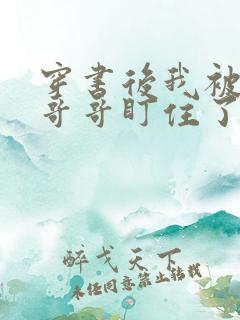 穿书后我被
哥哥盯住了
醉戈天下
未经同意禁止转载